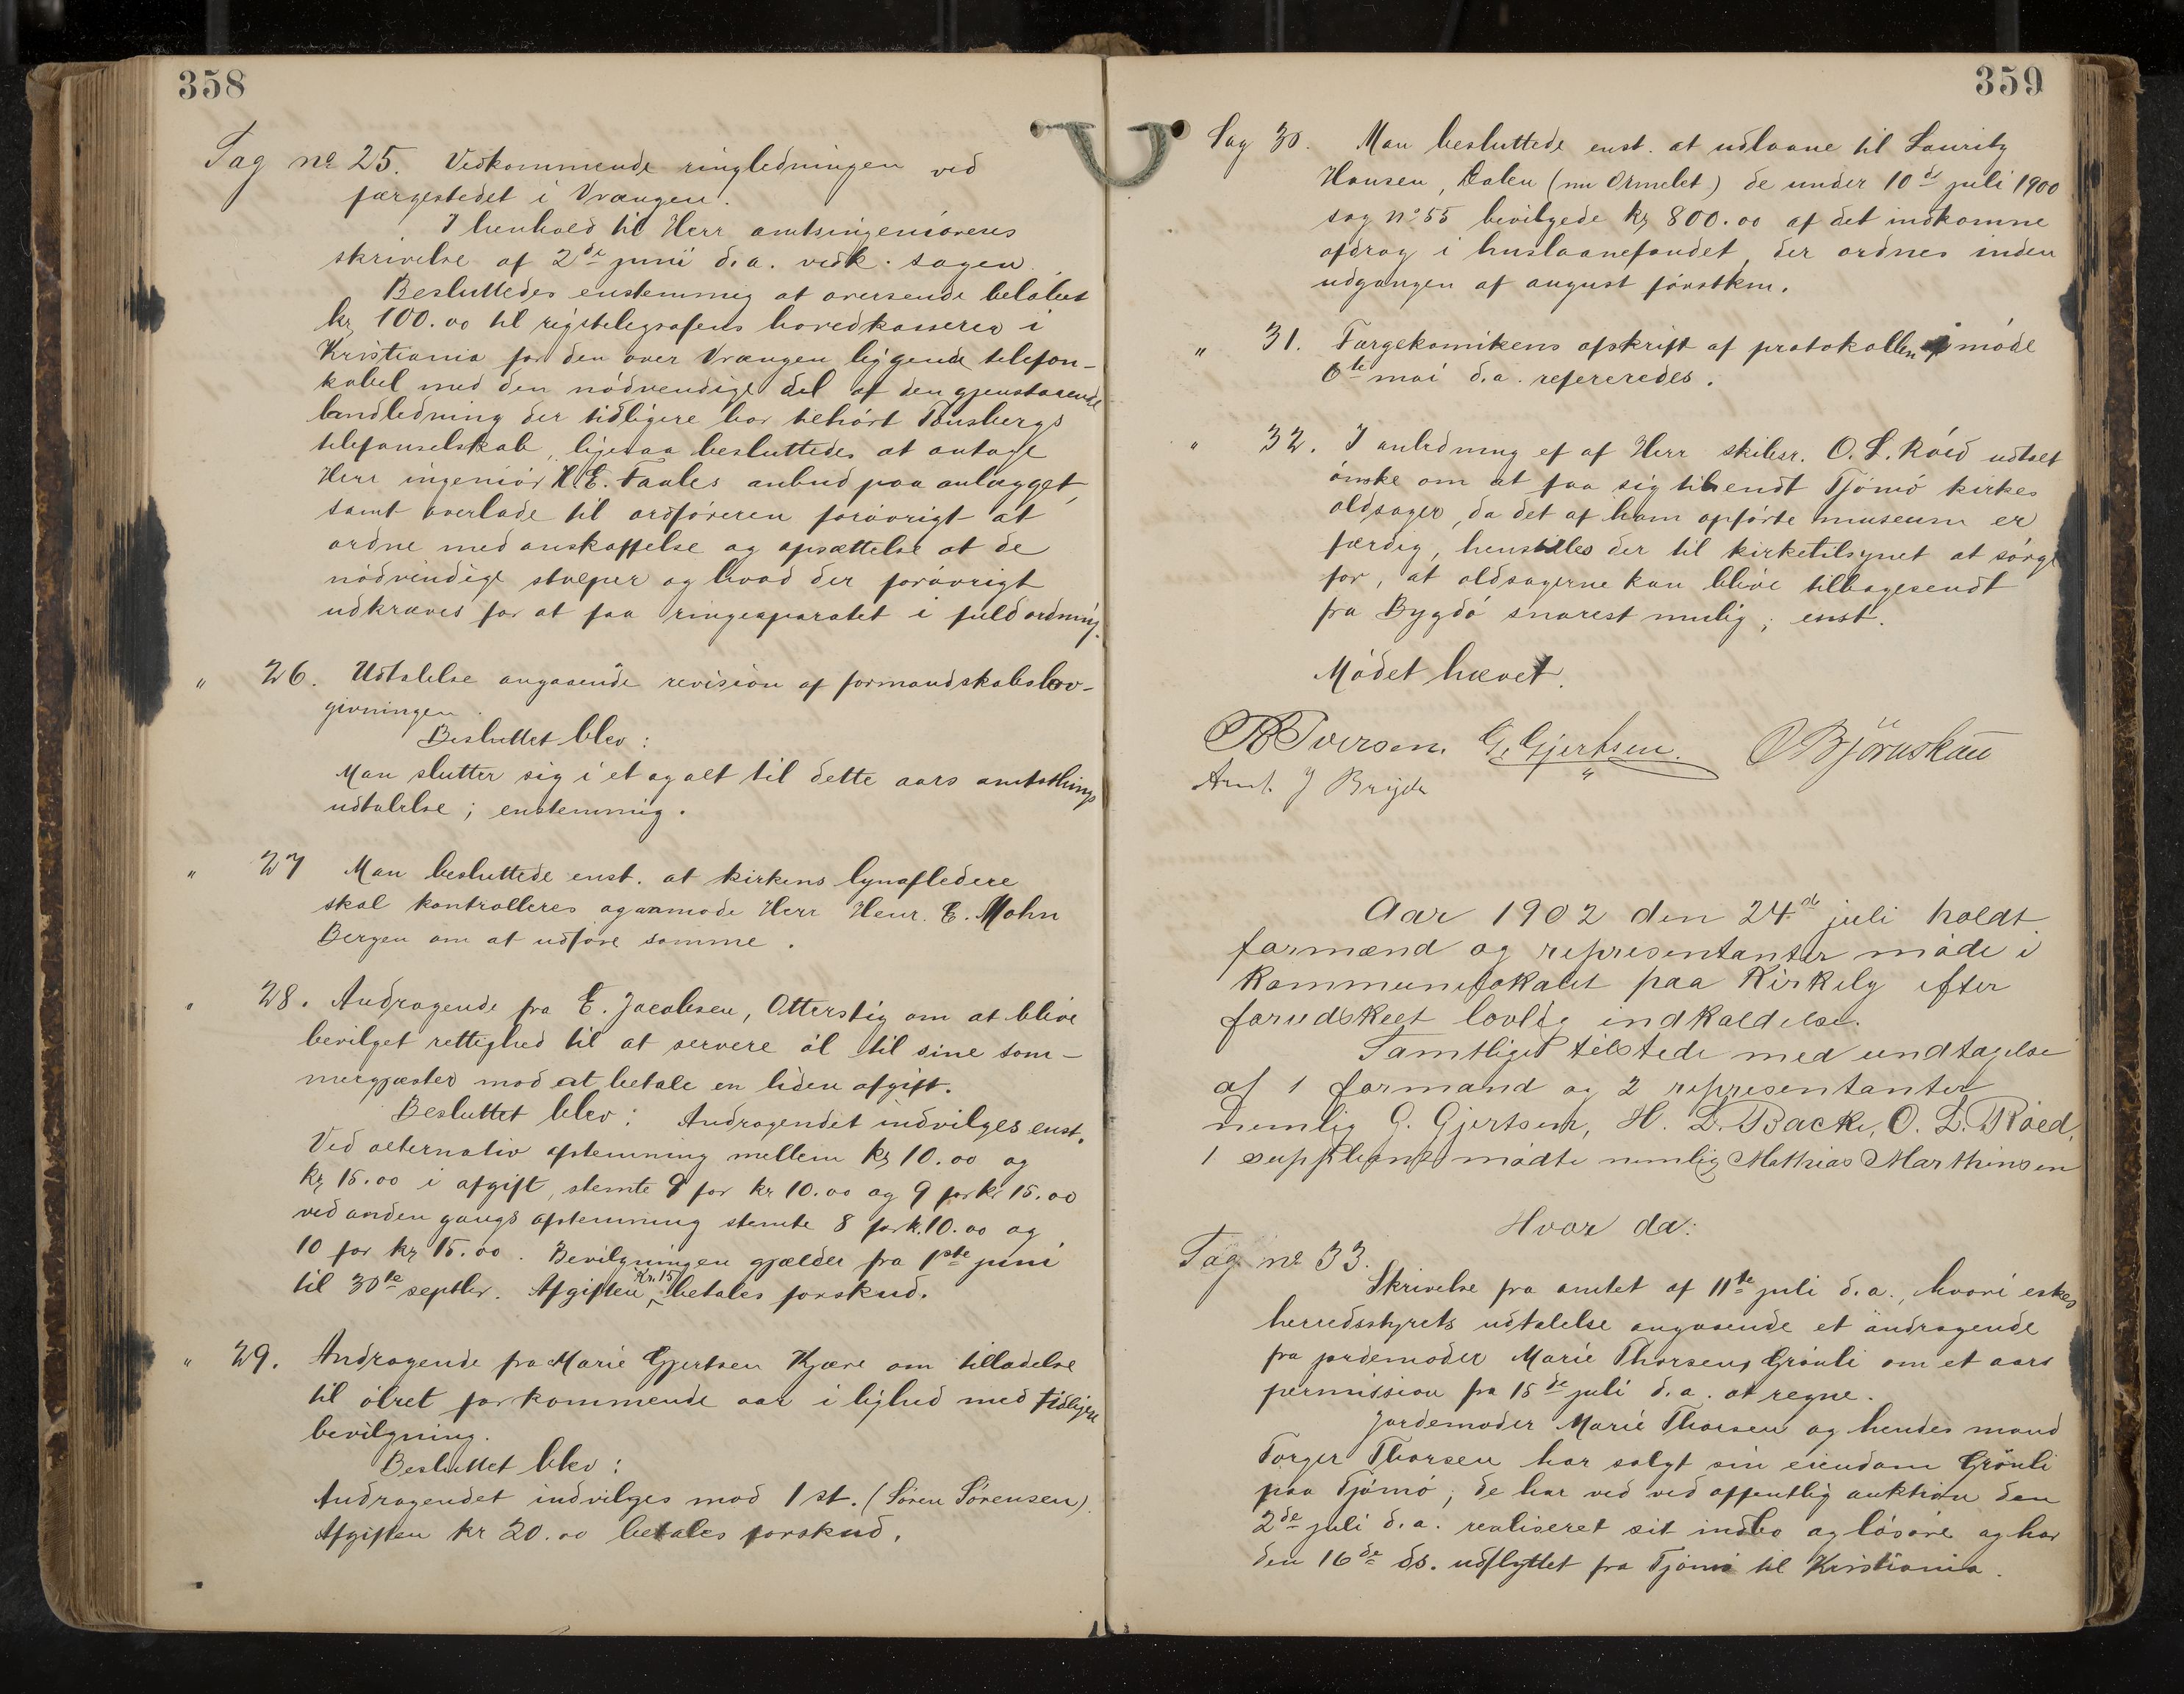 358
Sag no 25. Vedkommende ringledningen ved
færgestedet i Vrængen.
I henhold til Herr amtsingeniørens
skrivelse af 2de juni d.a. vedk. sagen
Besluttedes enstemmig at oversende beløbet
kr 100.00 til rigstelegrafens hovedkasserer i
Kristiania for den over Vrængen liggende telefon-
kabel med den nødvendige del af den gjenstaaende
landledning der tidligere har tilhørt Tønsbergs
telefonselskab, ligesaa besluttedes at antage
Herr ingeniør H.E. Taales anbud paa anlægget,
samt overlade til ordføreren forøvrigt at
ordne med anskaffelse og opsættelse at de
nødvendige stolper og hvad der forøvrigt
udkræves for at faa ringeaparatet i fuld ordning.
" 26. Udtalelse angaaende revision af formandskabslov-
givningen.
Besluttet blev:
Man slutter sig i et og alt til dette aars amtsthings
udtalelse; enstemmig.
" 27 Man besluttede enst. at kirkens lynafledere
skal kontrolleres og anmode Herr Henr. E. Mohn
Bergen om at udføre samme.
" 28. Andragende fra E. Jacobsen, Otterstig om at blive
bevilget rettighed til at servere øl til sine som-
mergjæster mod at betale en liden afgift.
Besluttet blev: Andragendet indvilges enst.
Ved alternativ afstemning mellem kr 10.00 og
kr 15.00 i afgift, stemte 9 for kr 10.00 og 9 for kr 15.00
ved anden gangs afstemning stemte 8 for k. 10.00 og
10 for kr 15.00. Bevilgningen gjælder fra 1ste juni
til 30te septbr. Afgiften Kr. 15 betales forskud.
" 29. Andragende fra Marie Gjertsen Kjære om tilladelse
til ølret for kommende aar i lighed med tidligere
bevilgning.
Besluttet blev:
Andragendet indvilges mod 1 st. (Søren Sørensen).
Afgiften kr 20.00 betales forskud.
359
Sag 30. Man besluttede enst. at udlaane til Lauritz
Hansen, Dalen (nu Ormelet) de under 10de juli 1900
sag no 55 bevilgede kr 800.00 af det indkomne
afdrag i huslaanefondet, der ordnes inden
udgangen af august førstkm.
" 31. Færgekomikens afskrift af protokollen i møde
6te mai d.a. refereredes.
" 32. I anledning ef af Herr skibsr. O. L. Røed udtalt
ønske om at faa sig tilsendt Tjømø kirkes
oldsager, da det af ham opførte museum er
færdig, henstilles der til kirketilsynet at sørge
for, at oldsagerne kan blive tilbagesendt
fra Bygdø snarest mulig; enst.
Mødet hævet.
Iversen. G. Gjertsen. O Bjørnskau
Arnt. J Bryde
Aar 1902 den 24de juli holdt
formænd og representanter møde i
kommunelokalet paa Kirkely efter
forudskeet lovlig indkaldelse.
Samtlige tilstede med undtagelse
af 1 formand og 2 representanter
nemlig G. Gjertsen, H. L. Backe, O. L. Røed,
1 suppleant mødte nemlig Mathias Marthinsen
Hvor da:
Sag no 33.
Skrivelse fra amtet af 11te juli d.a., hvori eskes
herredsstyrets udtalelse angaaende et andragende
fra jordemoder Marie Thorsen, Grønli om et aars
permission fra 15de juli d.a. at regne.
Jordemoder Marie Thorsen og hendes mand
Torger Thorsen har solgt sin eiendom Grønli
paa Tjømø; de har ved ved offentlig auktion den
2de juli d.a. realiseret sit indbo og løsøre og har
den 16de ds. udflyttet fra Tjømø til Kristiania.